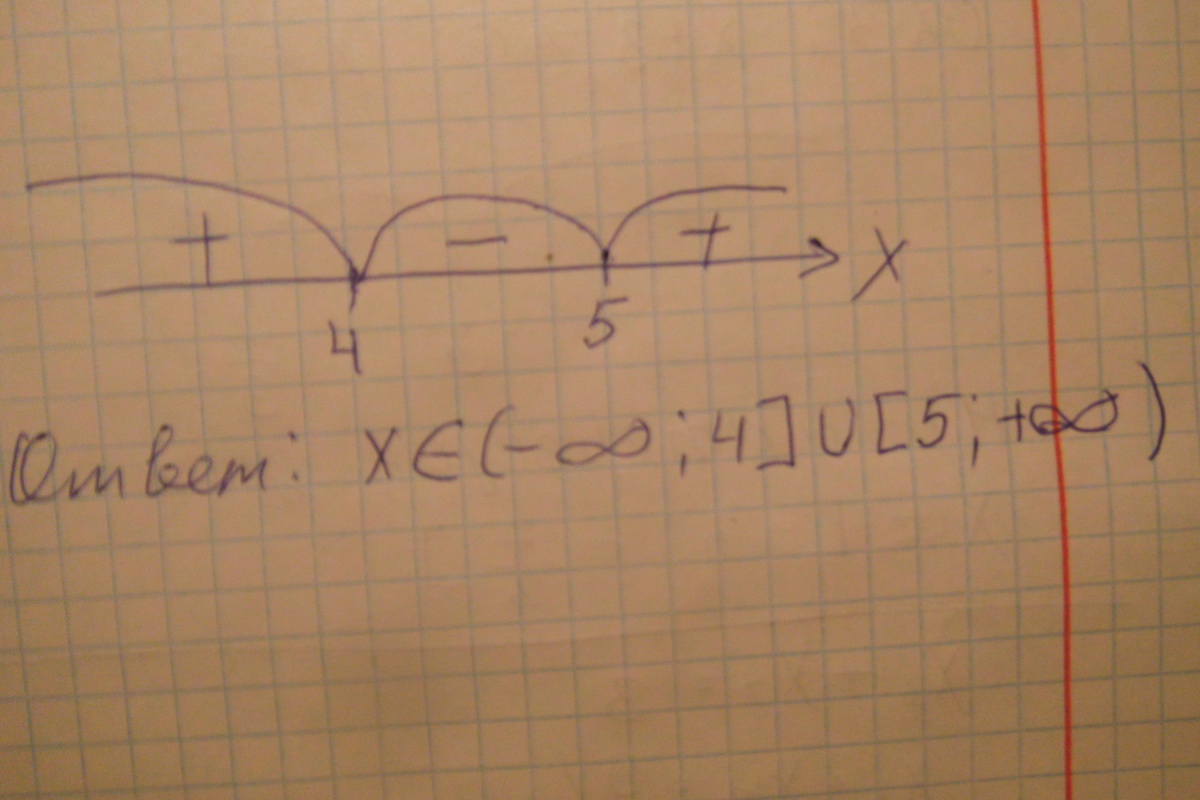 + − + X
4 5
Ответ: X∈(-∞; 4]∪[5; +∞)